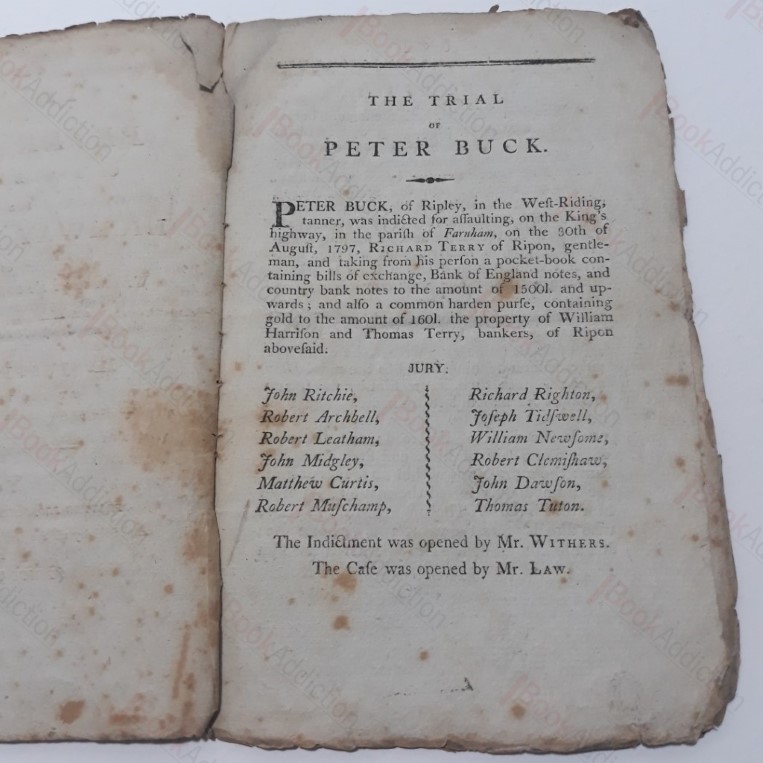 THE TRIAL
OF
PETER BUCK.
PETER BUCK, of Ripley, in the Weſt-Riding,
tanner, was indicted for aſſaulting, on the King's
highway, in the pariſh of Farnham, on the 30th of
Auguſt, 1797, RICHARD TERRY of Ripon, gentle-
man, and taking from his perſon a pocket-book con-
taining bills of exchange, Bank of England notes, and
country bank notes to the amount of 1500l. and up-
wards; and alſo a common harden purſe, containing
gold to the amount of 160l. the property of William
Harriſon and Thomas Terry, bankers, of Ripon
aboveſaid.
JURY.
John Ritchie,
Robert Archbell,
Robert Leatham,
John Midgley,
Matthew Curtis,
Robert Muſchamp,
Richard Righton,
Joſeph Tidſwell,
William Newſome,
Robert Clemiſhaw,
John Dawſon,
Thomas Tuton.
The Indictment was opened by Mr. WITHERS.
The Caſe was opened by Mr. LAW.
BookAddiction